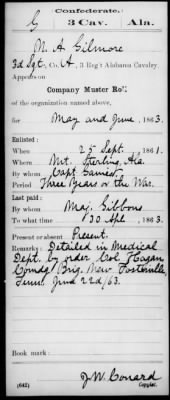 Confederate.
G 3 Cav. Ala.
M. A. Gilmore
3d Sgt, Co. A, 3 Reg't Alabama Cavalry.
Appears on
Company Muster Roll
of the organization named above,
for May and June, 1863.
Enlisted:
When 25 Sept., 1861.
Where Mt. Sterling, Ala.
By whom Capt
Period Three Years or the War.
Last paid:
By whom Maj. Gibbons
To what time 30 Apl, 1863.
Present or absent Present.
Remarks: Detailed in Medical
Dept. by order Col Hagan
Comdg Brig. New Fosterville,
Tenn. June 22d/63.
Book mark:
J. W. Conard
(642) Copyist.